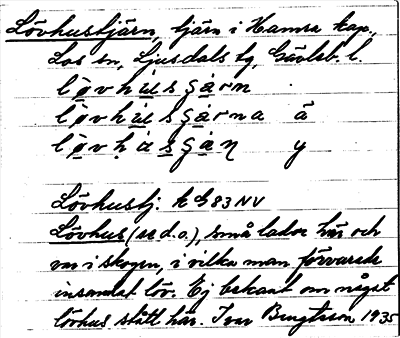 Lövhustjärn, tjärn i Hamra kap.,
Los sn, Ljusdals tg, Gävleb. l.
lövhusgårn
lövhusgårna å
lövhusgån y
Lövhustj: k G 83 NV
Lövhus (se d.o.), små lador här och
var i skogen, i vilka man förvarade
insamlat löv. Ej bekant om något
lövhus stått här. Ivar Bengtsson 1935